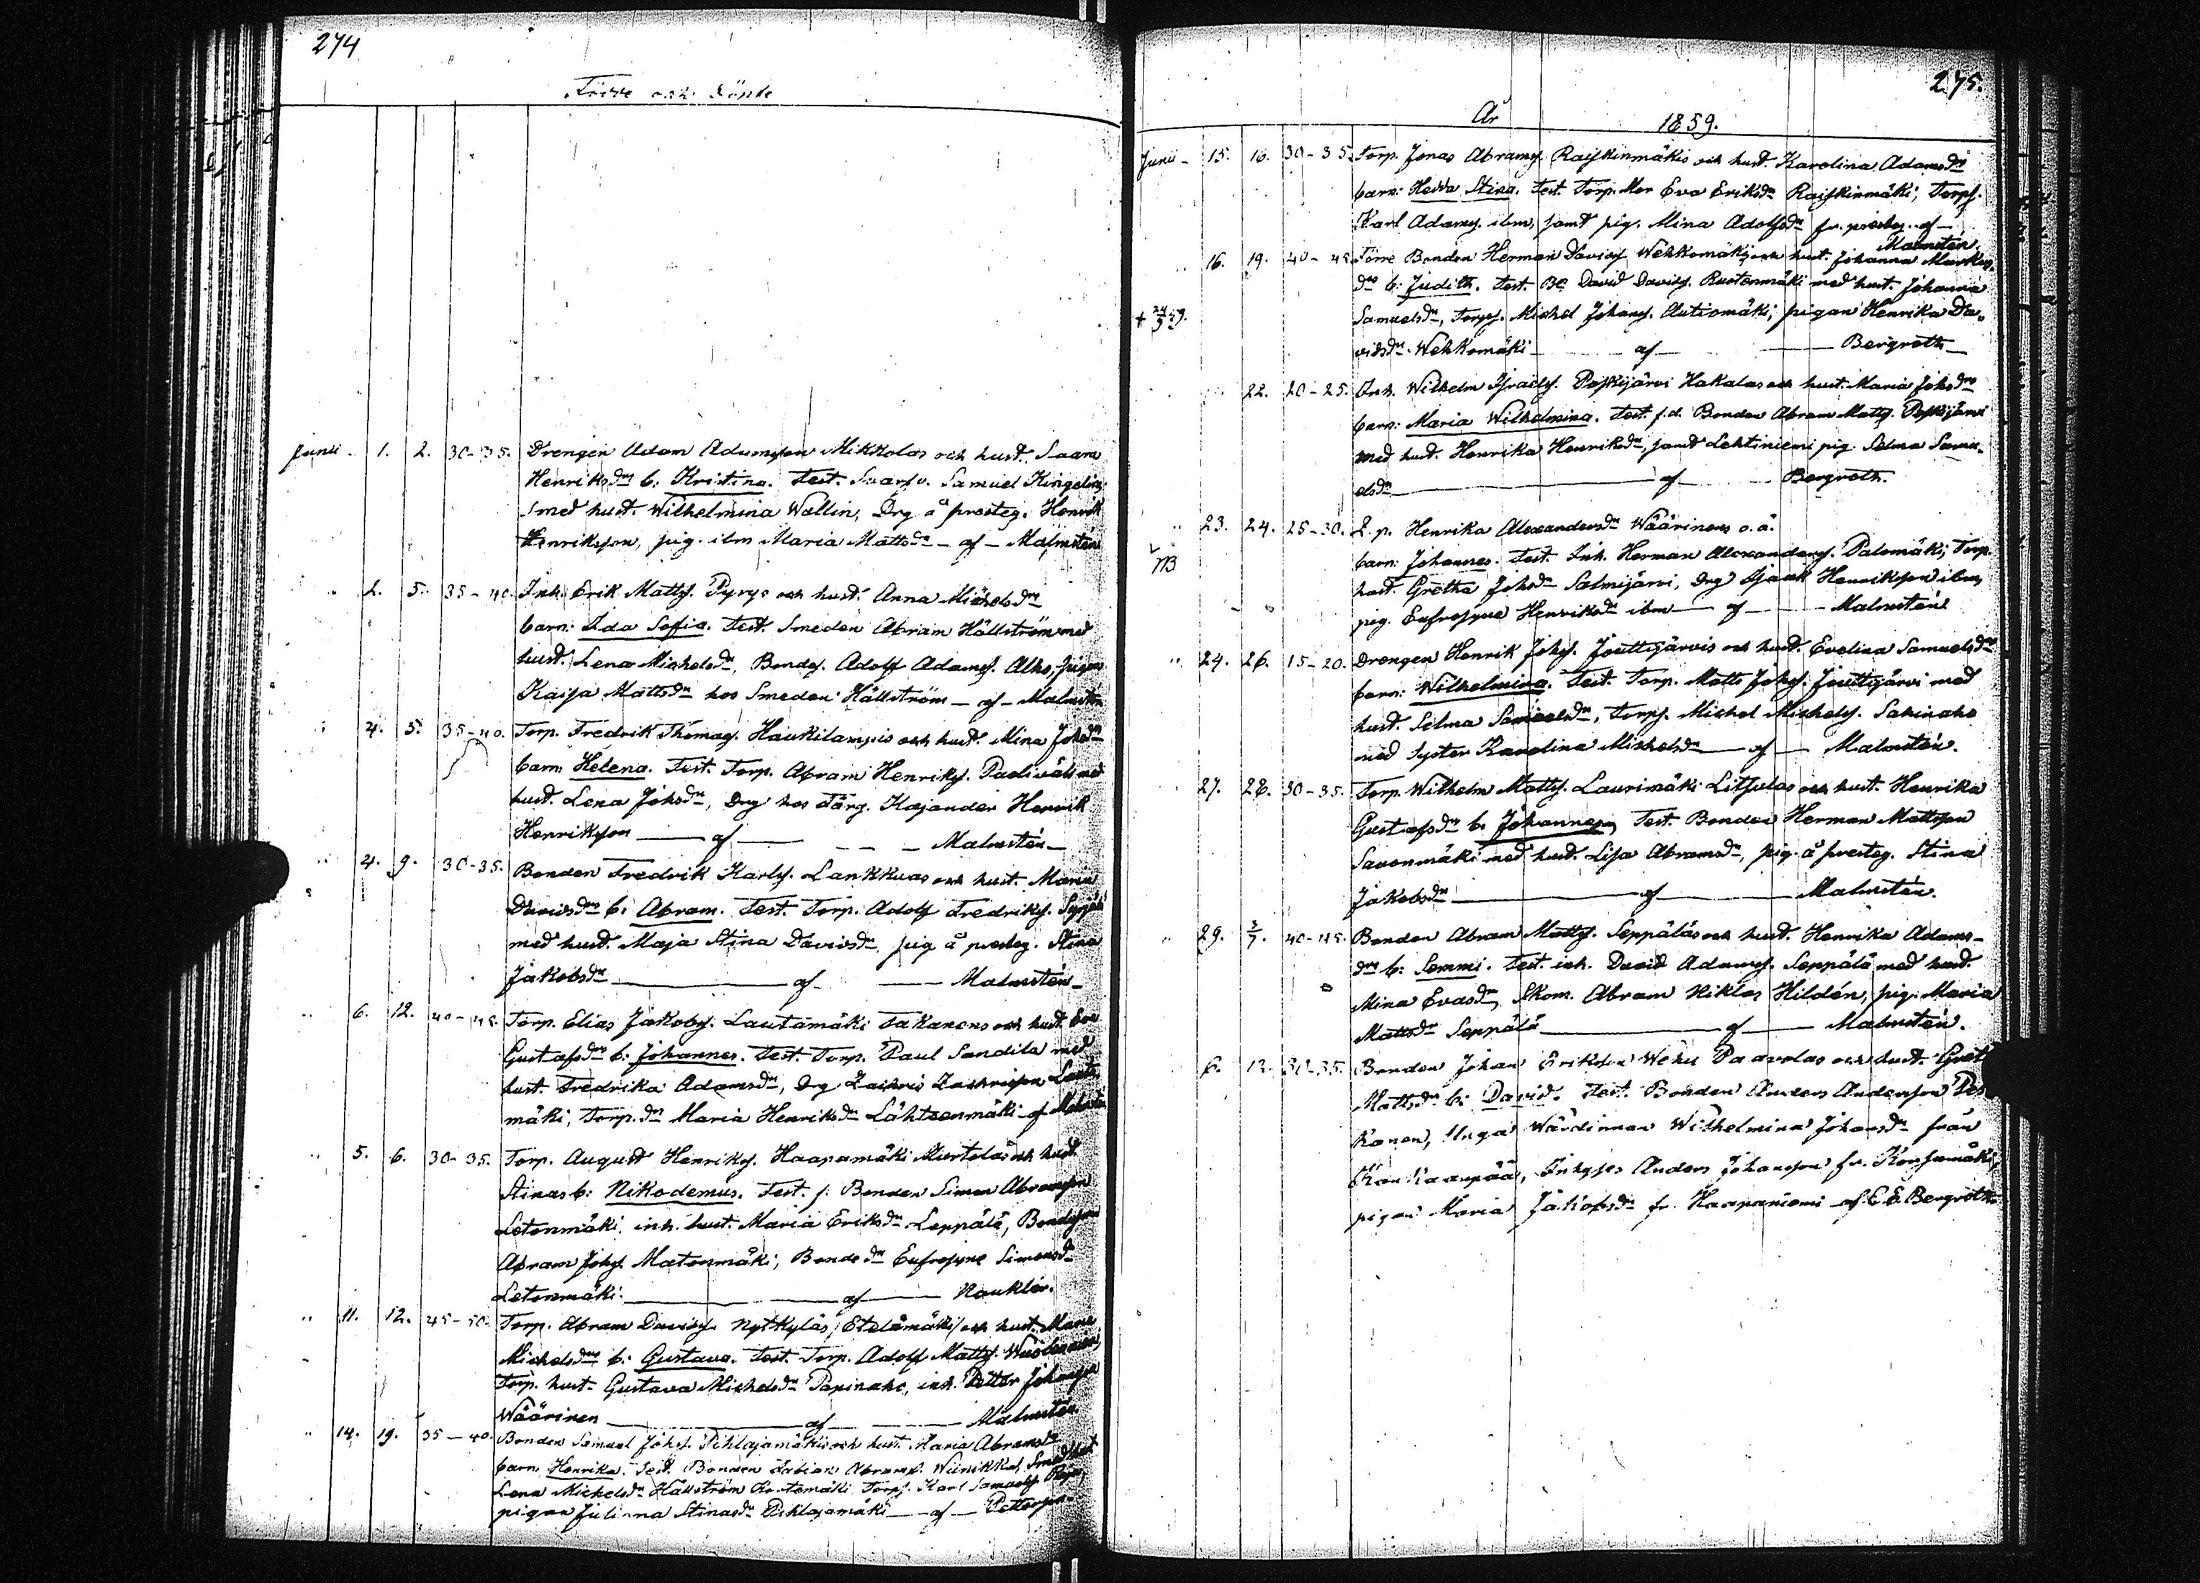 274
Födde och Döpte
Junii - 1. 2. 30-35. Drengen Adam Adamsson Mikkolas och hust. Saara
Henriksdrs b: Kristina. Test. Svarfv. Samuel Kingelin
med hust. Wilhelmina Wallin, Drg å presteg. Henrik
Henriksson, pig. ibm Maria Mattsdr - af - Malmstén
" 2. 5. 35-40. Inh. Erik Matts. Pyrys och hust. Anna Michelsdrs
barn: Ida Sofia. Test. Smeden Abram Hällström med
hust. Lena Michelsdr, Bondes. Adolf Adams. Alho, pigan
Kaisa Mattsdr hos Smeden Hällström - af - Malmstén
" 4. 5. 35-40. Torp. Fredrik Thomas. Haukilampis och hust. Mina Johsdrs
barn: Helena. Test. Torp. Abram Henriks. med
hust. Lena Johsdr, Drg hos Färg. Kajander Henrik
Henriksson - af - Malmstén
" 4. 9. 30-35. Bonden Fredrik Karls. Lankkuas och hust. Maria
Davidsdrs b: Abram. Test. Torp. Adolf Fredriks.
med hust. Maja Stina Davidsdr, pig å presteg. Stina
Jakobsdr - af - Malmstén
" 6. 12. 40-45. Torp. Elias Jakobs. Lautamäki Sakanens och hust. Eva
Gustafsdrs b: Johannes. Test. Torp. Paul Sandila med
hust. Fredrika Adamsdr, Drg Zachris Zachrisson Lauta
mäki, Torp.dr Maria Henriksdr Lähteenmäki - af Malmstén
" 5. 6. 30-35. Torp. August Henriks. Haapamäki Kurtelas och hust.
Stinas b: Nikodemus. Test. f. Bonden Simon Abramsson
Letonmäki, inh. hust. Maria Eriksdr Leppälä, Bondeson
Abram Johs. Matonmäki, Bondedr Eufrosyne Simonsdr
Letonmäki - af - Naukler.
" 11. 12. 45-50. Torp. Abram Davids. Nytkyläs / Etelämäki / och hust. Maria
Michelsdrs b: Gustava. Test. Torp. Adolf Matts. Wuolen
Torp. hust. Gustava Michelsdr Papinaho, inh. Petter Johansson
Wäärinen - af - Malmstén
" 14. 19. 35-40. Bonden Samuel Johs. Pihlajamäkis och hust. Maria Abramsdrs
barn: Henrika. Test. Bonden Fabian Abrams. Wiinikka, Smedhust
Lena Michelsdr Hällström Torps. Karl Samuels.
pigan Julianna Stinasdr Pihlajamäki - af - Pettersson
275.
År 1859.
Junii - 15. 16. 30-35. Torp. Jonas Abrams. Raiskinmäkis och hust. Karolina Adamsdrs
barn: Hedda Stina. Test. Torp. Mor Eva Eriksdr Raiskinmäki, Torps.
Karl Adams. ibm, samt pig. Mina Adolfsdr fr. presteg. af -
Malmstén.
" 16. 19. 40-45. Förre Bonden Herman Davids. Wehkomäkis och hust. Johanna Markus-
drs b: Judith. Test. Bd. David Davids. Rustenmäki med hust. Johanna
+ 24/9 59. Samuelsdr, Torps. Michel Johans. Autiomäki, pigan Henrika Da-
vidsdr Wehkomäki - af - Bergroth
22. 20-25. Inh. Wilhelm Israels. Poskijärvi Hakalas och hust. Maria Johsdrs
barn: Maria Wilhelmina. Test. f.d. Bonden Abram Matts. Poskijärvi
med hust. Henrika Henriksdr, samt Lehtiniemi pig. Selma Samu-
elsdr - af - Bergroth.
" 23. 24. 25-30. L. p. Henrika Alexandersdr Wäärinens o. ä.
NB barn: Johannes. Test. Inh. Herman Alexanders. Palomäki, Torp.
hust. Gretha Johsdr Salmijärvi, Drg Isaak Henriksson ibm,
pig. Eufrosyne Henriksdr ibm - af - Malmstén
" 24. 26. 15-20. Drengen Henrik Johs. Jouttijärvis och hust. Evelina Samuelsdrs
barn: Wilhelmina. Test. Torp. Matts Johs. Jouttijärvi med
hust. Selma Samuelsdr, Torps. Michel Michels. Sakinaho
med Syster Karolina Michelsdr - af - Malmstén.
27. 28. 30-35. Torp. Wilhelm Matts. Laurimäki Litsulas och hust. Henrika
Gustafsdrs b: Johannes, Test. Bonden Herman Mattsson
Savonmäki med hust. Lisa Abramsdr, pig. å presteg. Stina
Jakobsdr - af - Malmstén.
" 29. 3/7. 40-45. Bonden Abram Matts. Seppäläs och hust. Henrika Adams-
drs b: Semmi. Test. inh. David Adams. Seppälä med hust.
Mina Evasdr, Skom. Abram Niklas Hildén, pig. Maria
Mattsdr Seppälä - af - Malmstén.
" 6. 12. 30-35. Bonden Johan Eriksson Wehu Paavolas och hust. Greta
Mattsdrs b: David. Test. Bonden Anders Andersson Pes
konen, Unga Wärdinnan Wilhelmina Johansdr från
Kankaanpää, Inhyses Anders Johansson fr.
pigan Maria Jakobsdr fr. Haapaniemi af E E Bergroth